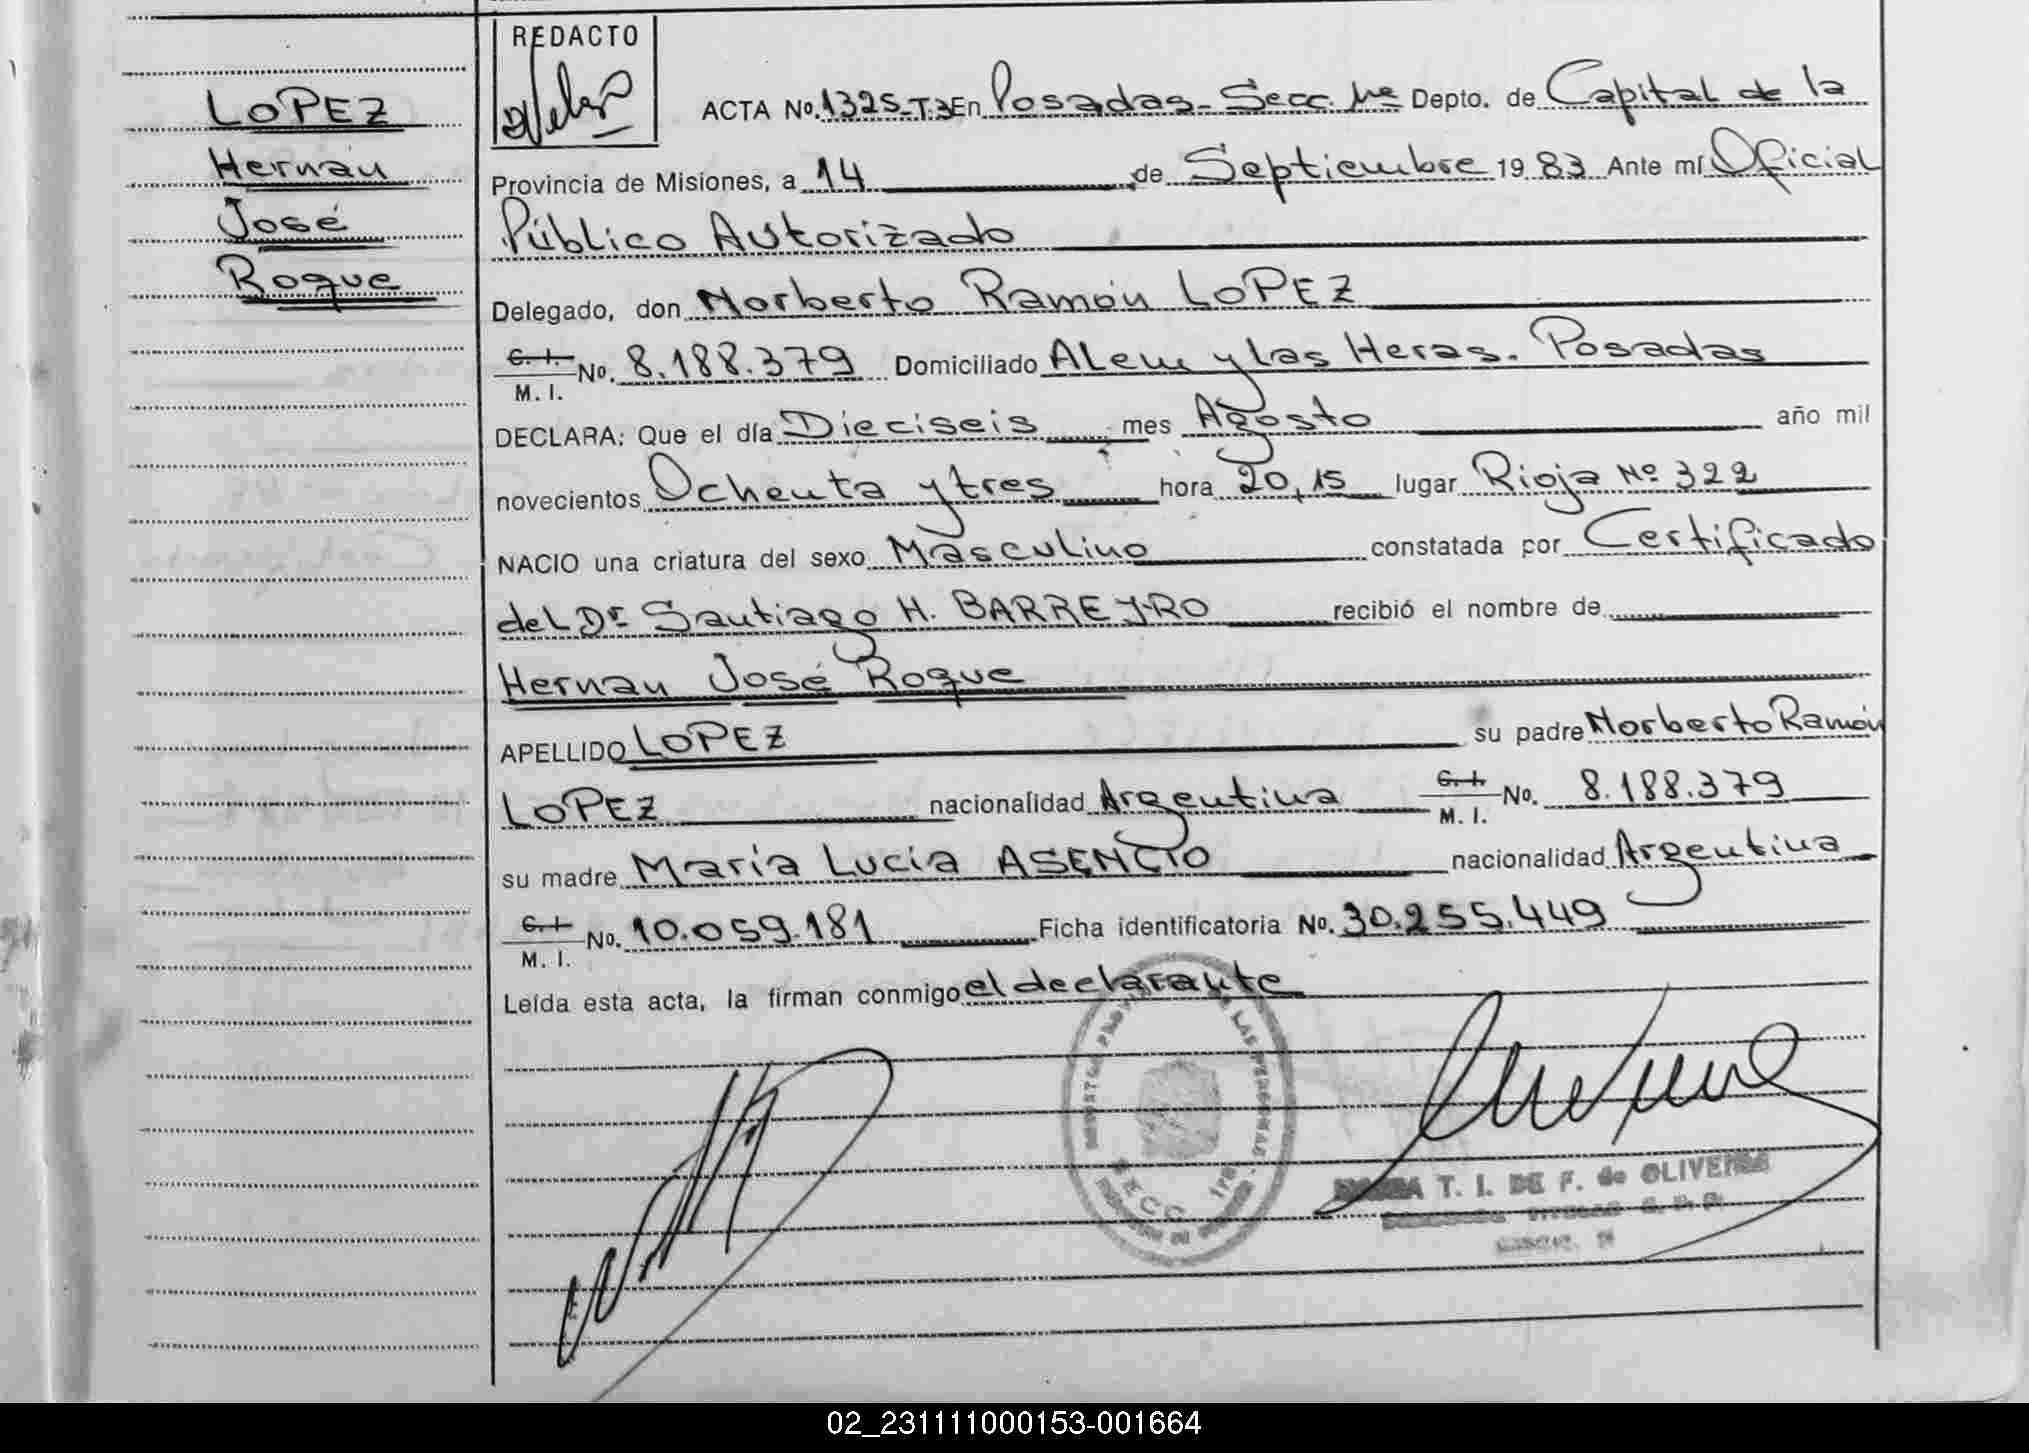 LOPEZ
Hernán
José
Roque
REDACTO
ACTA No. 1325-T.3 En Posadas - Secc. 1ra Depto. de Capital de la
Provincia de Misiones, a 14 de Septiembre 19 83 Ante mí Oficial
Público Autorizado
Delegado, don Norberto Ramón LOPEZ
C. I. / M. I. No. 8.188.379 Domiciliado ALem y las Heras. Posadas
DECLARA: Que el día Dieciseis mes Agosto año mil
novecientos Ochenta y tres hora 20,15 lugar Rioja Nº 322
NACIO una criatura del sexo Masculino constatada por Certificado
del Dr Santiago H. BARREYRO recibió el nombre de
Hernan José Roque
APELLIDO LOPEZ su padre Norberto Ramón
LOPEZ nacionalidad Argentina C. I. / M. I. No. 8.188.379
su madre María Lucía ASENCIO nacionalidad Argentina
C. I. / M. I. No. 10.059.181 Ficha identificatoria No. 30.255.449
Leída esta acta, la firman conmigo el declarante
LAS PERSONAS
SECC. 1ra
T. I. DE F. de OLIVEIRA
02_231111000153-001664